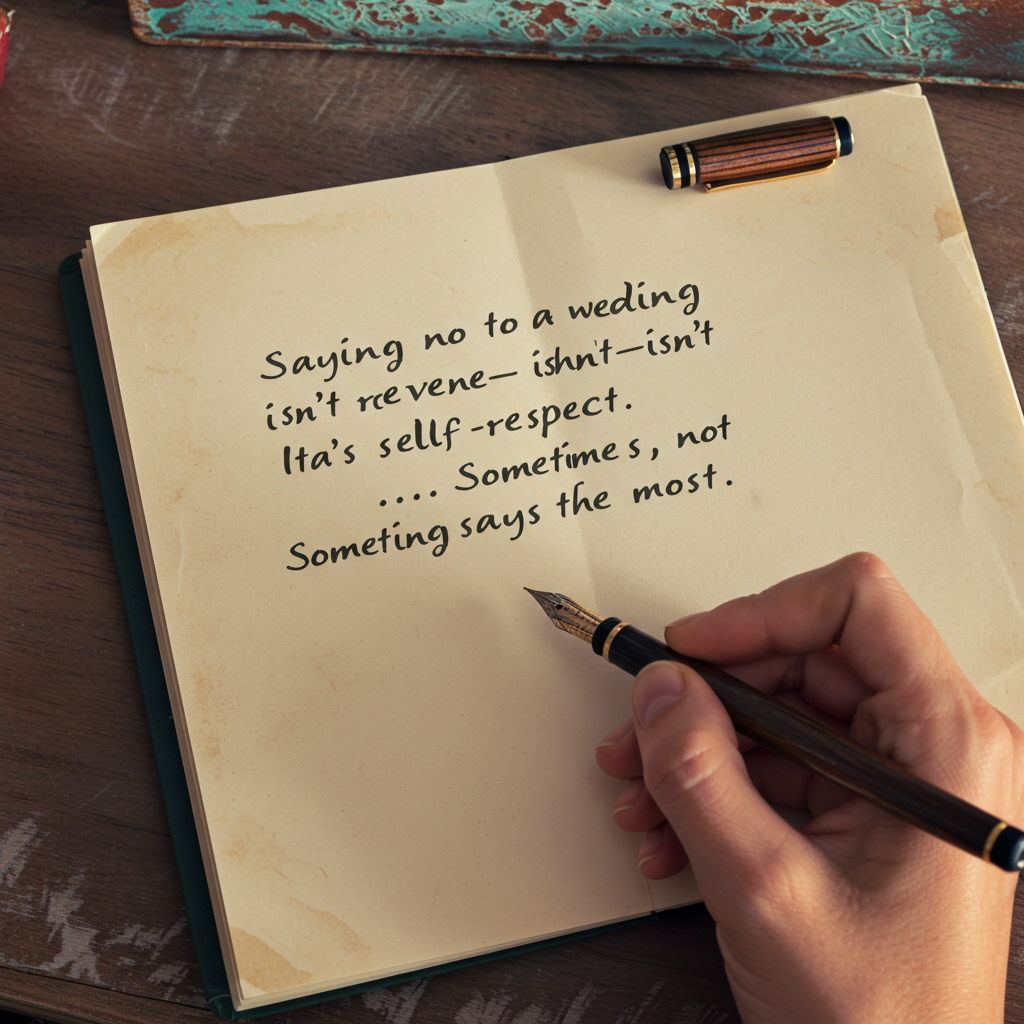 Saying no to a weding
isn't rcevene— ishn't—isn't
Ita's sellf-respect.
.... Sometimes, not
Someting says the most.